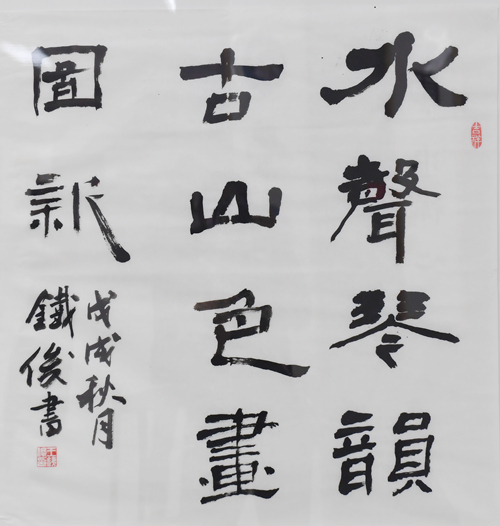 水聲琴韻
古山色畫
圖新
戊戌秋月
鐵俊書